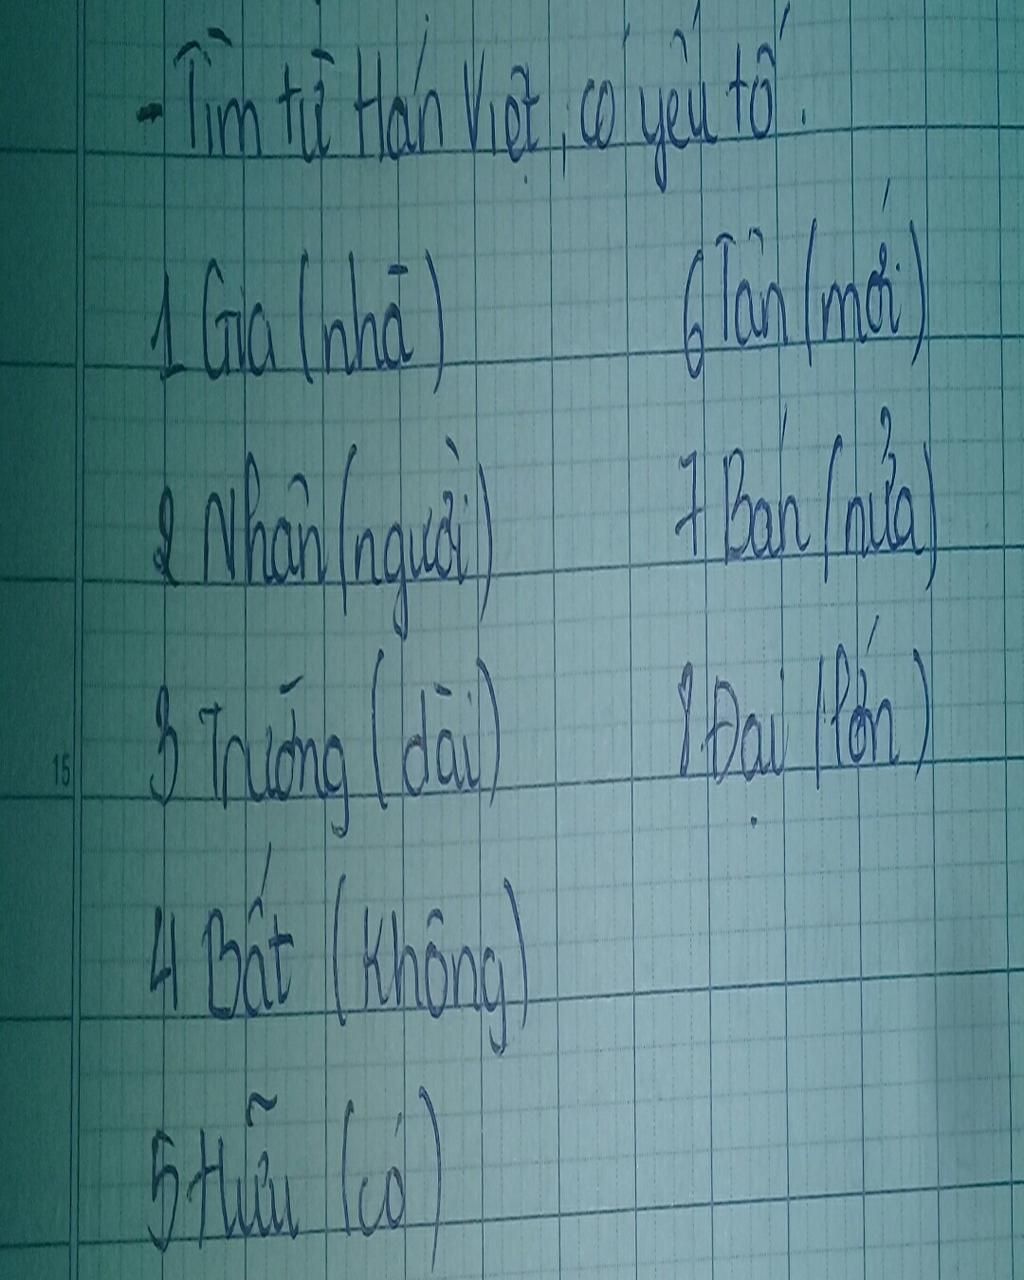 - Tìm từ Hán Việt, có yếu tố.
1 Gia (nhà)
2 Nhân (người)
3 Trường (dài)
4 Bất (không)
5 Hữu (có)
6 Tân (mới)
7 Bán (nửa)
8 Đại (lớn)
15